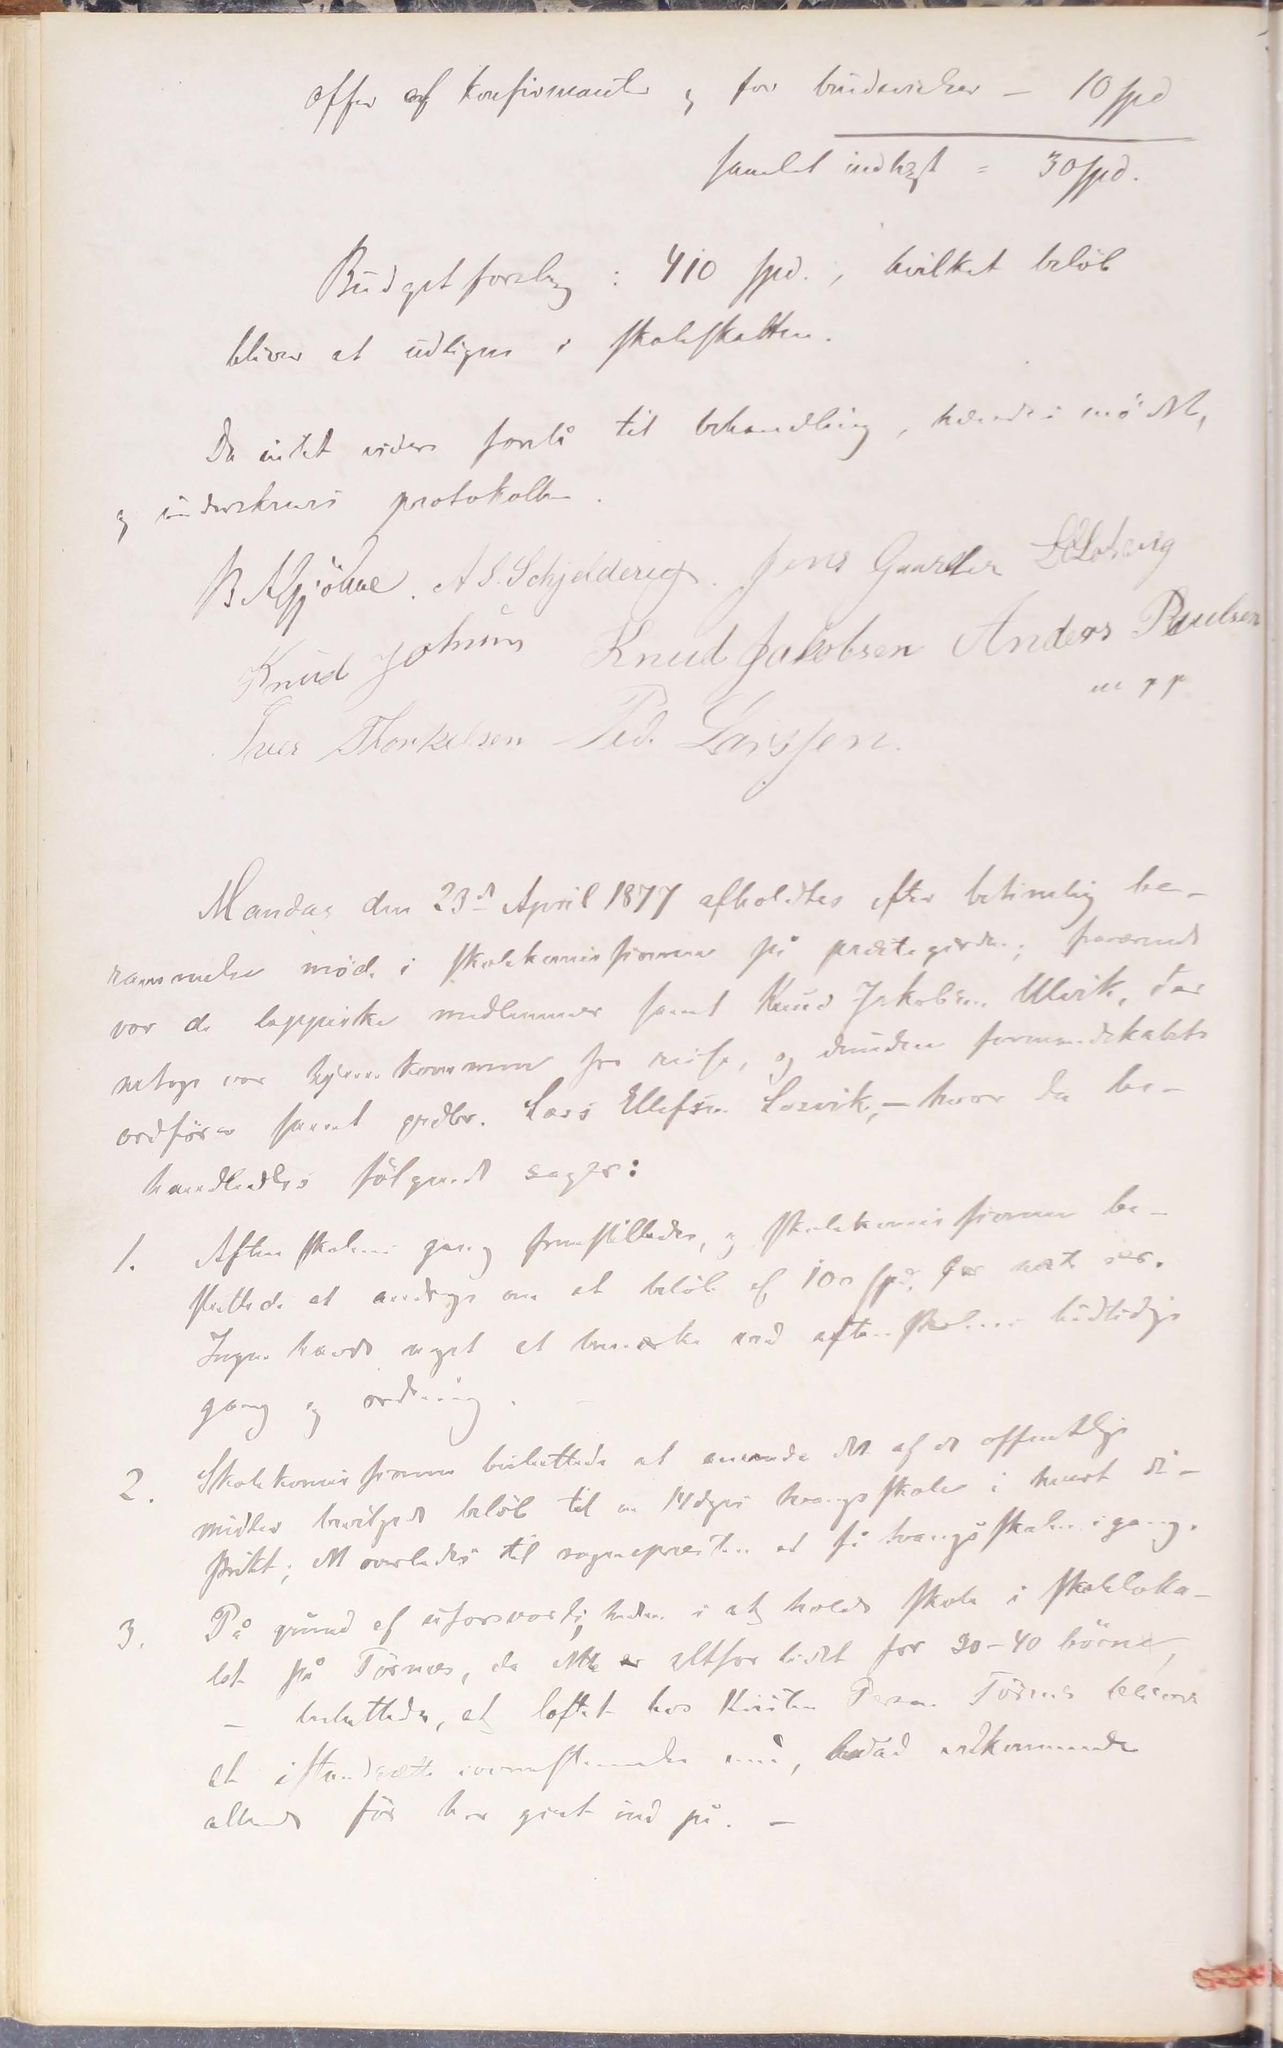 offer af konfirmanter og for brudevielser – 10 spd
samlet indtægt = 30 spd.
Budgetforslag : 410 spd., hvilket beløb
bliver at udligne i skoleskatten.
Da intet videre forelå til behandling, hævedes mødet,
og underskrives protokollen.
B Alfsjöhne. A S. Schjelderup. Jens Gunder
Knud Johnsen Knud Jakobsen Anders Paulsen
m p p
Iver Thorkelsen Ped. Larssen.
Mandag den 23de April 1877 afholdtes efter betimelig be-
rammelse möde i skolekommissionen på prestegården; fraværende
var de lappiske medlemmer samt Knud Jakobsen Ulvik, der
netop var hjemkommen fra reise, og desuden formandskabets
ordförer samt grdbr. Lars Ellefsen Losvik, – hvor da be-
handledes fölgende sager:
1. Aftenskolens gang fremstilledes, og skolekommissionen be-
sluttede at andrage om et belöb af 100 spd. for næste år.
Ingen havde noget at bemærke ved aftenskolens hidtidige
gang og ordning. –
2. Skolekommissionen besluttede at anvende det af de offentlige
midler bevilgede belöb til en 14 dages tvangsskole i hvert di-
strikt; det overlades til sognepresten at få tvangsskolen i gang.
3. På grund af uforsvarligheden i at holde skole i skoleloka-
let på Törnes, da dette er altfor lidet for 30-40 börne,
– besluttedes, at loftet hos Kirsten Törnes bliver
at istandsætte overensstemmende med, hvad vedkommende
allerede för har gået ind på. –